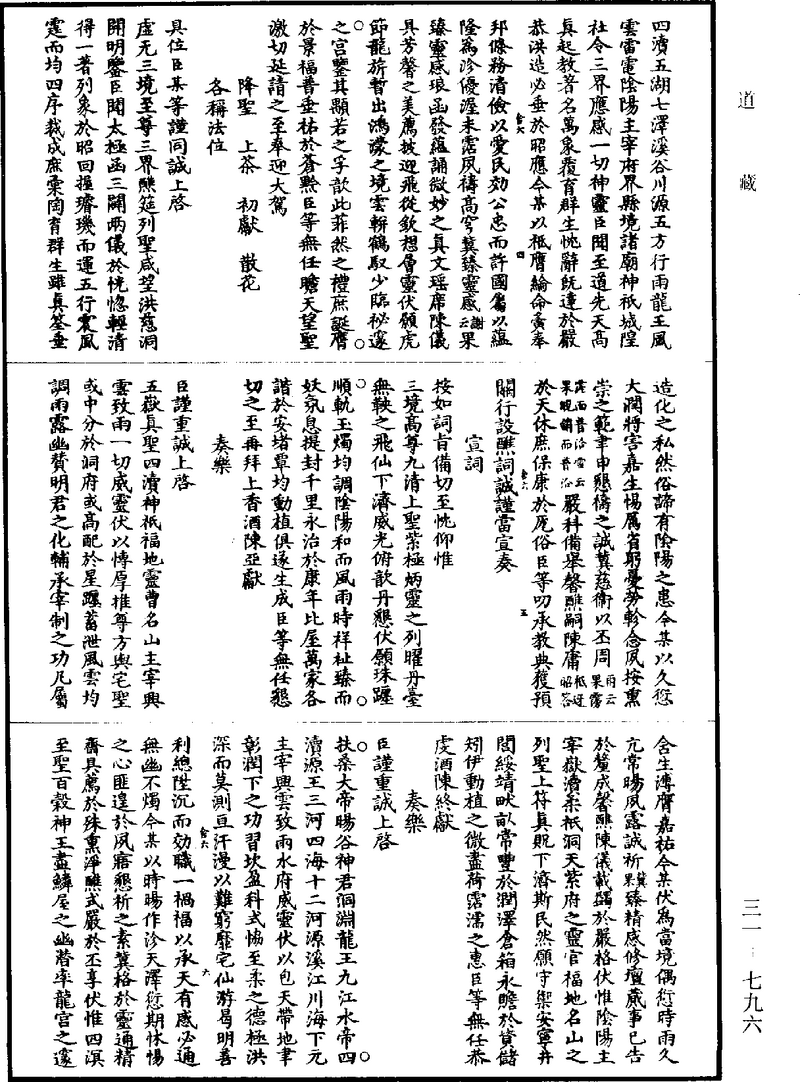 四瀆五湖七澤溪谷川源五方行雨龍王風
雲雷電陰陽主宰府界縣境諸廟神祇城隍
社令三界應感一切神靈臣聞至道先天高
真起教著名萬象覆育群生恍辭既達於嚴
恭洪造必垂於昭應今某以祇膺綸命奉
邦條務清儉以愛民効公忠而許國屬以蘊
隆為沴優渥未霑夙禱高穹冀臻靈感謝云果
臻靈感琅函發蘊誦微妙之真文瑶席陳儀
具芳馨之美薦披迎飛從欽想層靈伏願虎
節龍旂暫出鴻濛之境雲軿鶴馭少臨祕邃
之宫鑒其顯若之孚歆此菲然之禮庶誕膺
於景福普垂祐於蒼黔臣等無任瞻天望聖
激切延請之至奉迎大駕
降聖　上茶　初獻　散花
各稱法位
具位臣某等謹同誠上啓
虛无三境至尊三界醮筵列聖咸望洪慈洞
開明鑒臣聞太極函三闢兩儀於恍惚輕清
得一著列象於昭回握璿璣而運五行震風
霆而均四序裁成庶彙陶育群生雖真筌垂
造化之私然俗諦有陰陽之患今某以久愆
大潤將害嘉生惕厲省躬憂勞軫念夙按熏
崇之範聿申懇禱之誠冀慈衛以丕周雨云果霑
霈而普洽雪云果覩銷而普沾嚴科備舉馨醮嗣陳庸祗迓昭荅
於天休庶保康於厖俗臣等叨承教典獲預
關行設醮詞誠謹當宣奏
宣詞
按如詞旨備切至忱仰惟
三境高尊九清上聖紫極炳靈之列曜丹臺
無鞅之飛仙下濟威光俯歆丹懇伏願珠躔
順軌玉燭均調陰陽和而風雨時祥祉臻而
妖氛息提封千里永治於康年比屋萬家各
諧於安堵覃均動植俱遂生成臣等無任懇
切之至再拜上香酒陳亞獻
奏樂
臣謹重誠上啓
五嶽真聖四瀆神祇福地靈曹名山主宰興
雲致雨一切威靈伏以博厚推尊方輿宅聖
或中分於洞府或高配於星躔蓄泄風雲均
調雨露幽贊明君之化輔承宰制之功凡屬
含生溥膺嘉祐今某伏為當境偶愆時雨久
亢常暘夙露誠祈冀果臻精感修壇蕆事已告
於釐成馨醮陳儀載蠲於嚴格伏惟陰陽主
宰嶽瀆柔祇洞天紫府之靈官福地名山之
列聖上符真貺下濟斯民然願守禦安寧井
閭綏靖畎畝常豐於潤澤倉箱永贍於貲儲
矧伊動植之微盡荷霑濡之惠臣等無任恭
虔酒陳終獻
奏樂
臣謹重誠上啓
扶桑大帝暘谷神君洞淵龍王九江水帝四
瀆源王三河四海十二河源溪江川海下元
主宰興雲致雨水府威靈伏以包天帶地聿
彰潤下之功習坎盈科式恊至柔之德極洪
深而莫測亘汗漫以難窮靡宅仙游曷明善
利總陞沉而効職一禍福以承天有感必通
無幽不燭今某以時暘作沴天澤愆期怵惕
之心匪遑於夙寤懇祈之素冀格於靈通精
齋具薦於殊熏淨醮式嚴於丕享伏惟四溟
至聖百穀神王盡鱗屋之幽潛率龍宫之邃
道　藏
三一—七九六